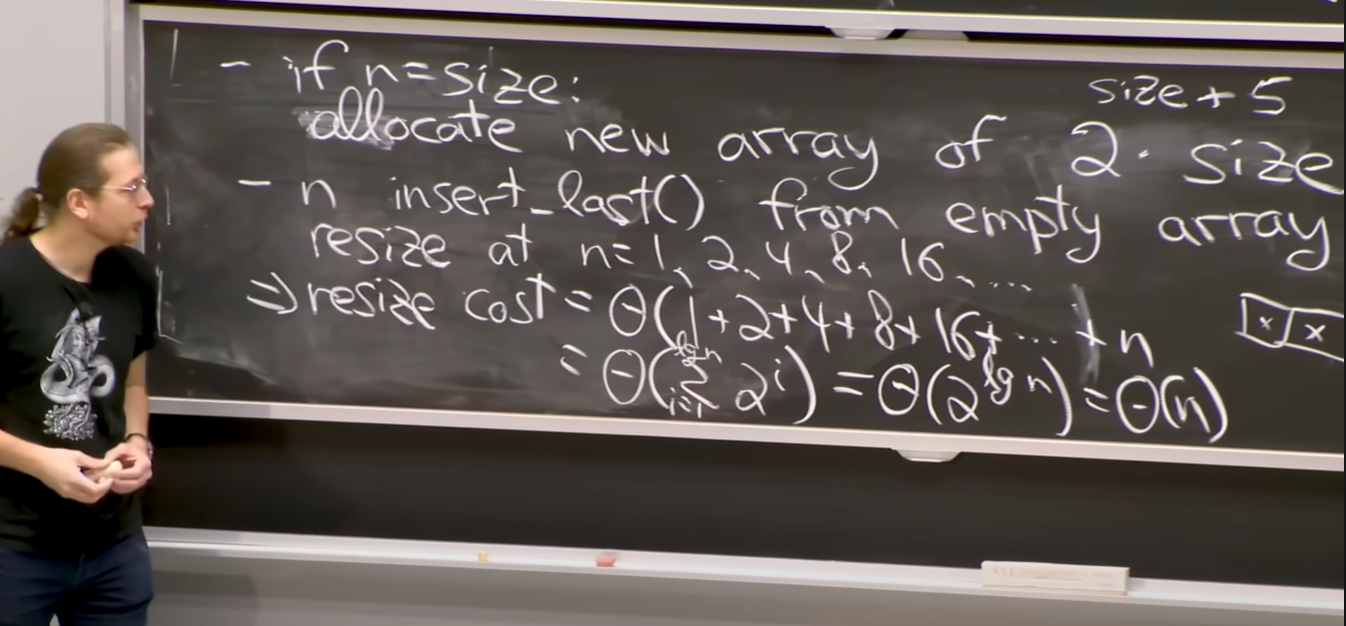 size + 5
- if n=size:
allocate new array of 2· size
- n insert_last() from empty array
resize at n=1, 2, 4, 8, 16, ...
⇒ resize cost = Θ(1+2+4+8+16+ ... + n)
= Θ(∑_{i=1}^{lg n} 2^i) = Θ(2^{lg n}) = Θ(n)
x x